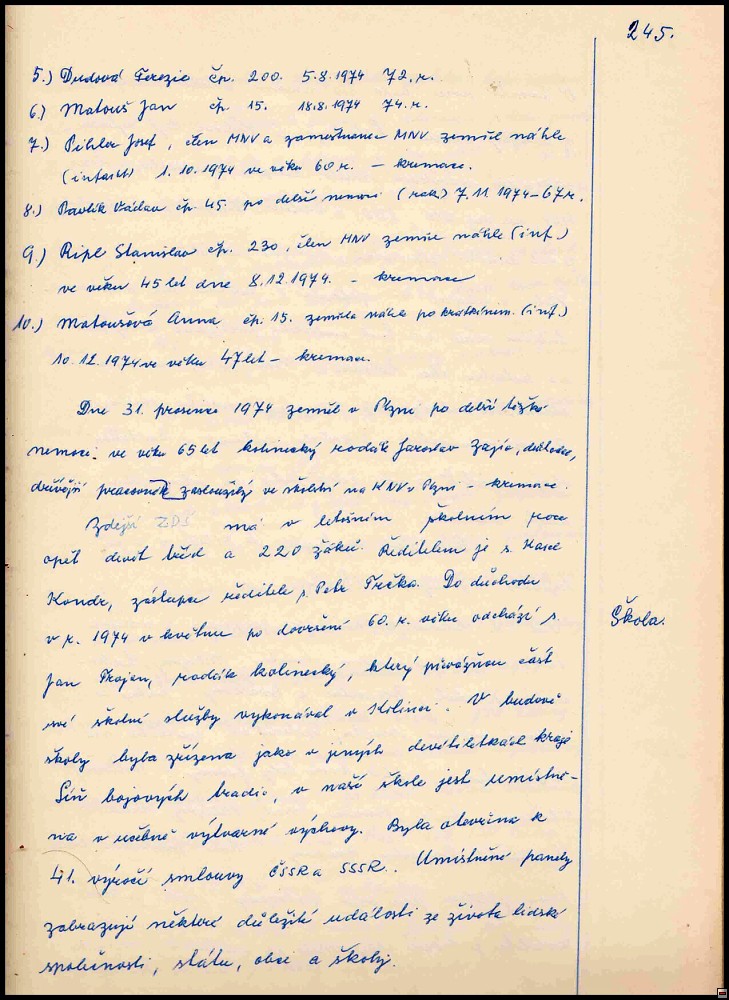 245.
5.) Dudová Terezie čp. 200. 5.8.1974 72.r.
6.) Matouš Jan čp. 15. 18.8.1974 74.r.
7.) Pihler Josef, člen MNV a zaměstnanec MNV zemřel náhle
(infarkt) 1.10.1974 ve věku 60 r. – kremace.
8.) Pavlík Václav čp. 45. po delší nemoci (rak) 7.11.1974 – 67 r.
9.) Ripl Stanislav čp. 230, člen MNV zemřel náhle (inf.)
ve věku 45 let dne 8.12.1974. – kremace
10.) Matoušová Anna čp. 15. zemřela náhle po krátké nem. (inf.)
10.12.1974 ve věku 47 let – kremace.
Dne 31. prosince 1974 zemřel v Plzni po delší těžké
nemoci, ve věku 65 let kolinecký rodák Jaroslav Zajíc, důchodce,
dřívější pracovník zasloužilý ve školství na KNV v Plzni – kremace.
Zdejší ZDŠ má v letošním školním roce
opět devět tříd a 220 žáků. Ředitelem je s. Karel
Kondr, zástupce ředitele s. Petr Trčka. Do důchodu
v r. 1974 v květnu po dovršení 60. r. věku odchází s.
Jan Trojan, rodák kolinecký, který převážnou část
své školní služby vykonával v Kolinci. V budově
školy byla zřízena jako v jiných devítiletkách kraje
Síň bojových tradic, v naší škole jest umístně-
na v učebně výtvarné výchovy. Byla otevřena k
41. výročí smlouvy ČSSR a SSSR. Umístněné panely
zobrazují některé důležité události ze života lidské
společnosti, státu, obce a školy.
Škola.